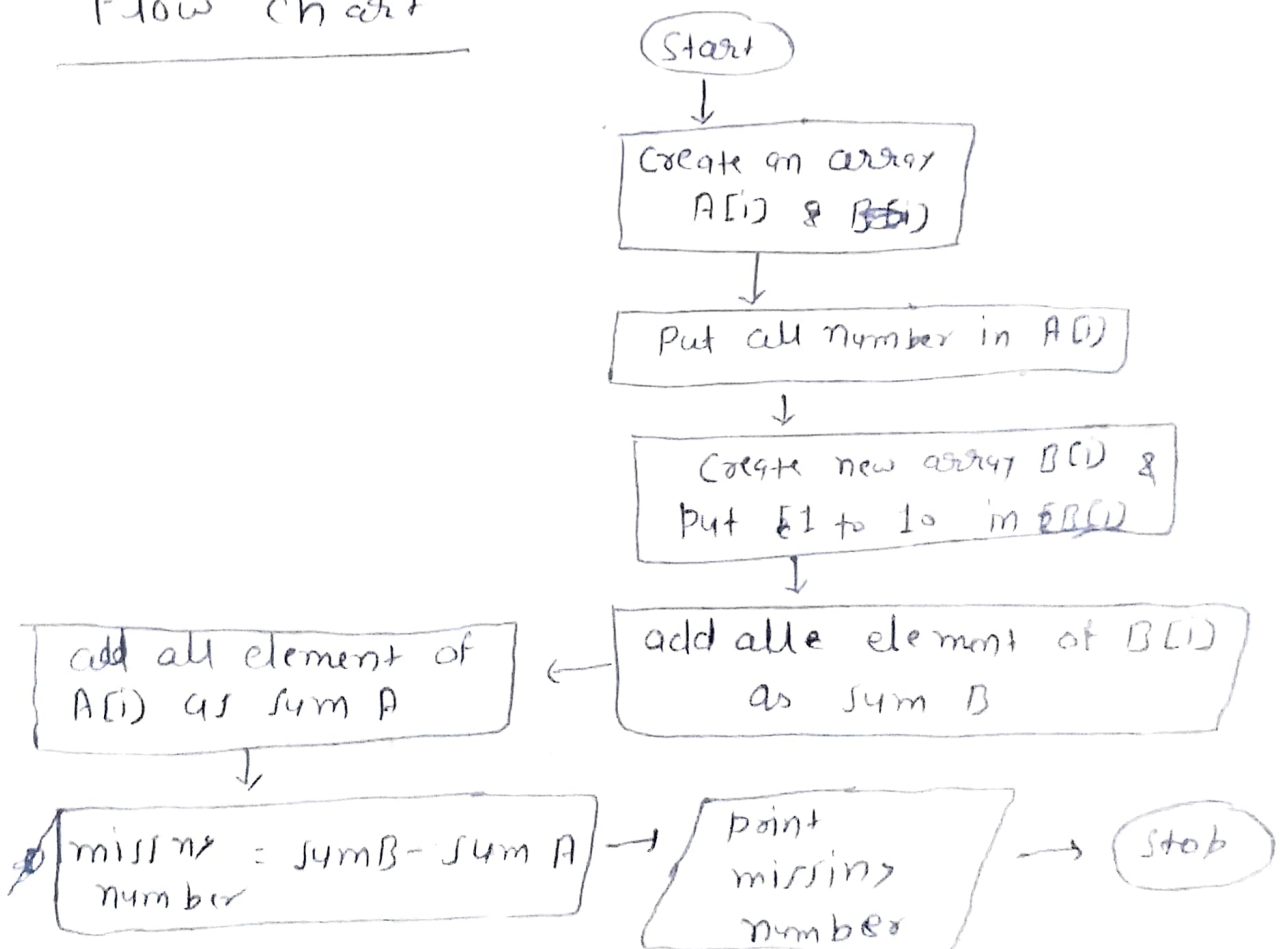 Flow Chart
Start
Create an array
A[i] & B[i]
Put all number in A[i]
Create new array B[i] &
Put 1 to 10 in B[i]
add all element of B[i]
as sum B
add all element of
A[i] as sum A
missing = sumB - sum A
number
print
missing
number
Stop